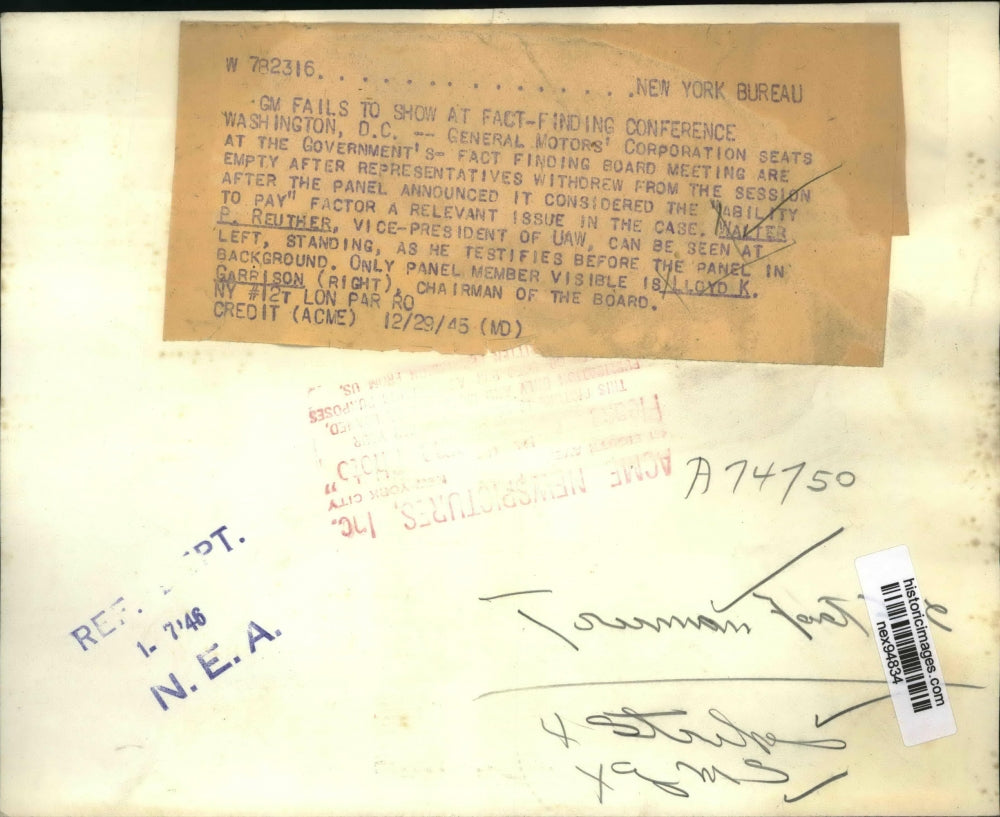 W 782316. . . . . . . . . . . . . . .NEW YORK BUREAU
GM FAILS TO SHOW AT FACT-FINDING CONFERENCE
WASHINGTON, D.C. -- GENERAL MOTORS' CORPORATION SEATS
AT THE GOVERNMENT'S- FACT FINDING BOARD MEETING ARE
EMPTY AFTER REPRESENTATIVES WITHDREW FROM THE SESSION
AFTER THE PANEL ANNOUNCED IT CONSIDERED THE "ABILITY
TO PAY" FACTOR A RELEVANT ISSUE IN THE CASE. WALTER
P. REUTHER, VICE-PRESIDENT OF UAW, CAN BE SEEN AT
LEFT, STANDING, AS HE TESTIFIES BEFORE THE PANEL IN
BACKGROUND. ONLY PANEL MEMBER VISIBLE IS LLOYD K.
GARRISON (RIGHT), CHAIRMAN OF THE BOARD.
NY #12T LON PAR RO
CREDIT (ACME) 12/29/45 (MD)
FROM US.
PURPOSES
THIS
NEW YORK CITY
ACME NEWSPICTURES, Inc.
A74750
REF. DEPT.
1- 7'46
N. E. A.
Truman Fact
4 Strikes
X GMC
historicimages.com
nex94834